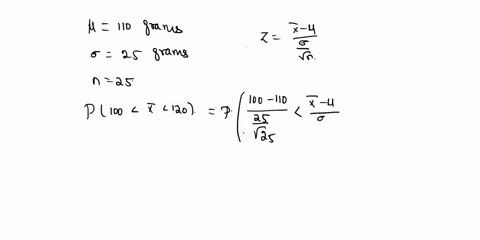 μ = 110 grams
σ = 25 grams
n = 25
z = (x̄ - μ) / (σ / √n)
P(100 < x̄ < 120) = P( (100 - 110) / (25 / √25) < (x̄ - μ) / σ